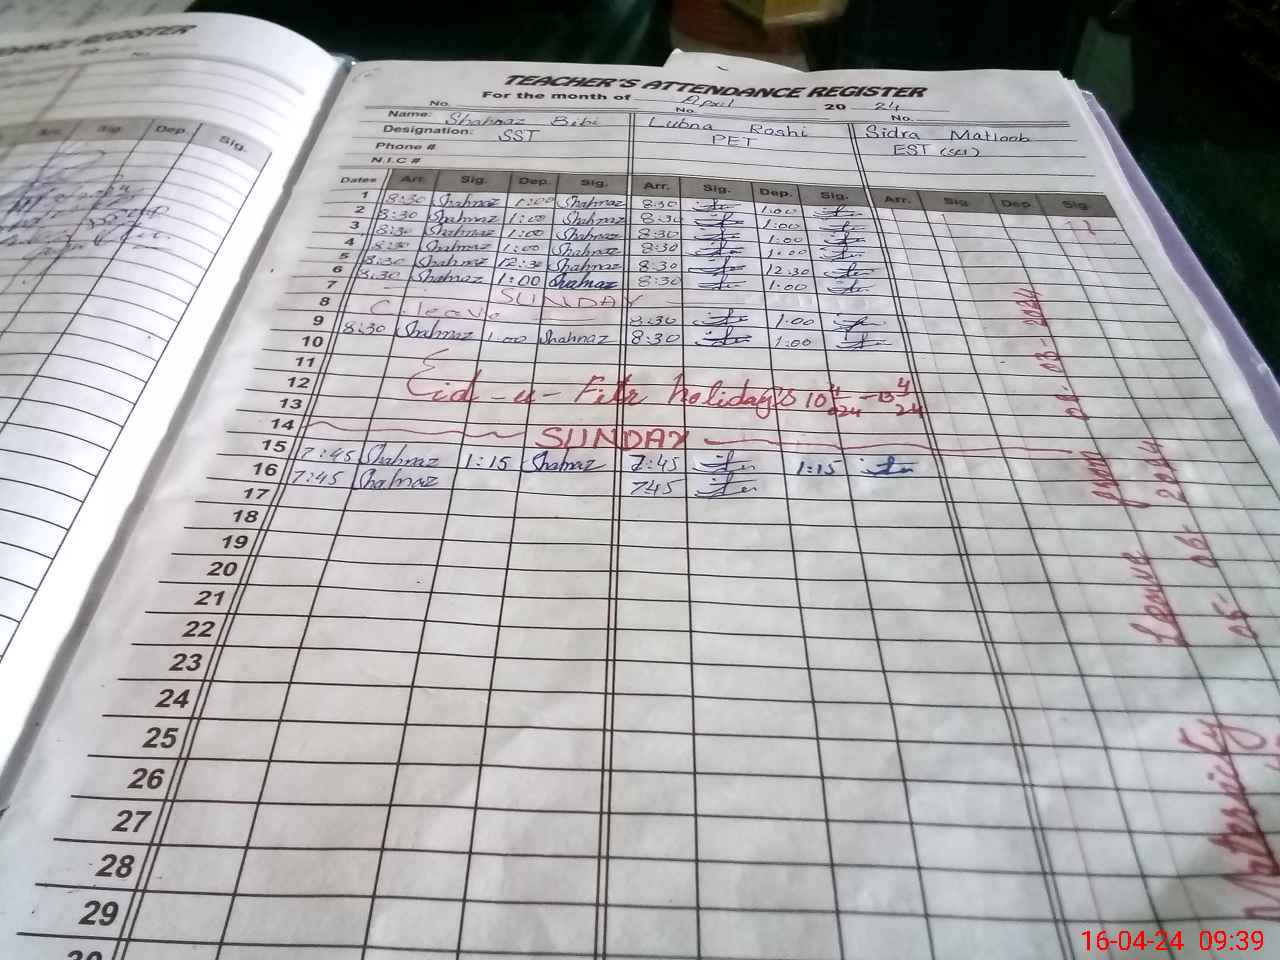 DANCE REGISTER
No.
Arr. Sig. Dep. Sig.
TEACHER'S ATTENDANCE REGISTER
For the month of April 20 24
No. No. No.
Name: Shahnaz Bibi Lubna Roshi Sidra Matloob
Designation: SST PET EST (sci)
Phone #
N.I.C #
Dates Arr. Sig. Dep. Sig. Arr. Sig. Dep. Sig. Arr. Sig. Dep. Sig.
1 8:30 Shahnaz 1:00 Shahnaz 8:30 1:00
2 8:30 Shahnaz 1:00 Shahnaz 8:30 1:00
3 8:30 Shahnaz 1:00 Shahnaz 8:30 1:00
4 8:30 Shahnaz 1:00 Shahnaz 8:30 1:00
5 8:30 Shahnaz 12:30 Shahnaz 8:30 12:30
6 8:30 Shahnaz 1:00 Shahnaz 8:30 1:00
7 SUNDAY
8 C. leave 8:30 1:00
9 8:30 Shahnaz 1:00 Shahnaz 8:30 1:00
10
11
12 Eid-u-Fitr holidays 10 4/024 - 13 4/24
13
14 SUNDAY
15 7:45 Shahnaz 1:15 Shahnaz 7:45 1:15
16 7:45 Shahnaz 745
17
18
19
20
21
22
23
24
25
26
27
28
29
30
Maternity Leave from 01-03-2024
05-06-2024
16-04-24 09:39